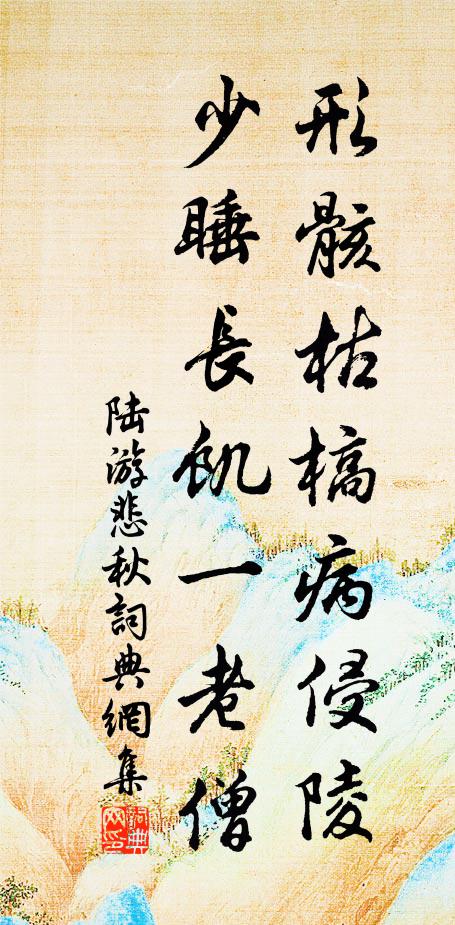 形骸枯槁病侵陵
少睡長飢一老僧
陆游悲秋詞典網集
詞典网印